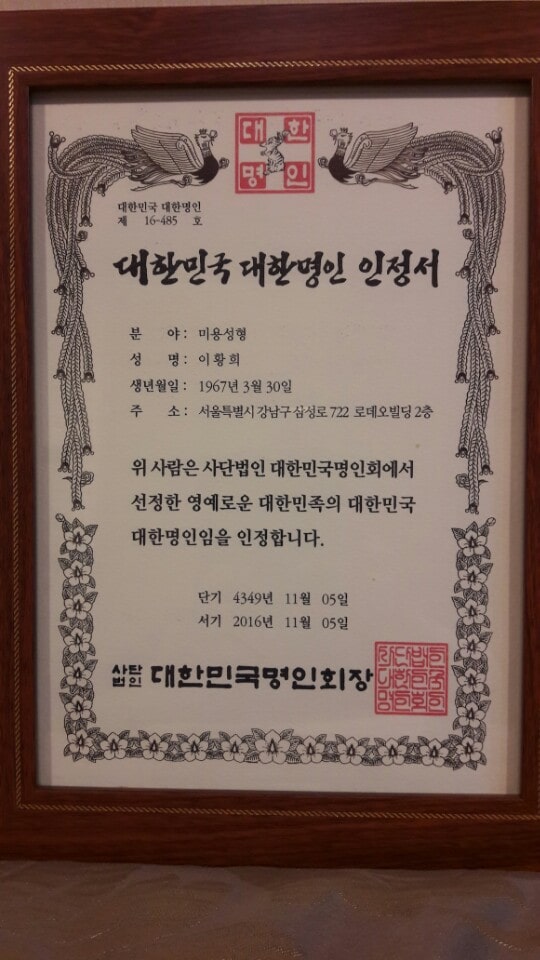 대한
명인
대한민국 대한명인
제 16-485 호
대한민국 대한명인 인정서
분 야 : 미용성형
성 명 : 이황희
생년월일 : 1967년 3월 30일
주 소 : 서울특별시 강남구 삼성로 722 로데오빌딩 2층
위 사람은 사단법인 대한민국명인회에서
선정한 영예로운 대한민족의 대한민국
대한명인임을 인정합니다.
단기 4349년 11월 05일
서기 2016년 11월 05일
사단법인 대한민국명인회장